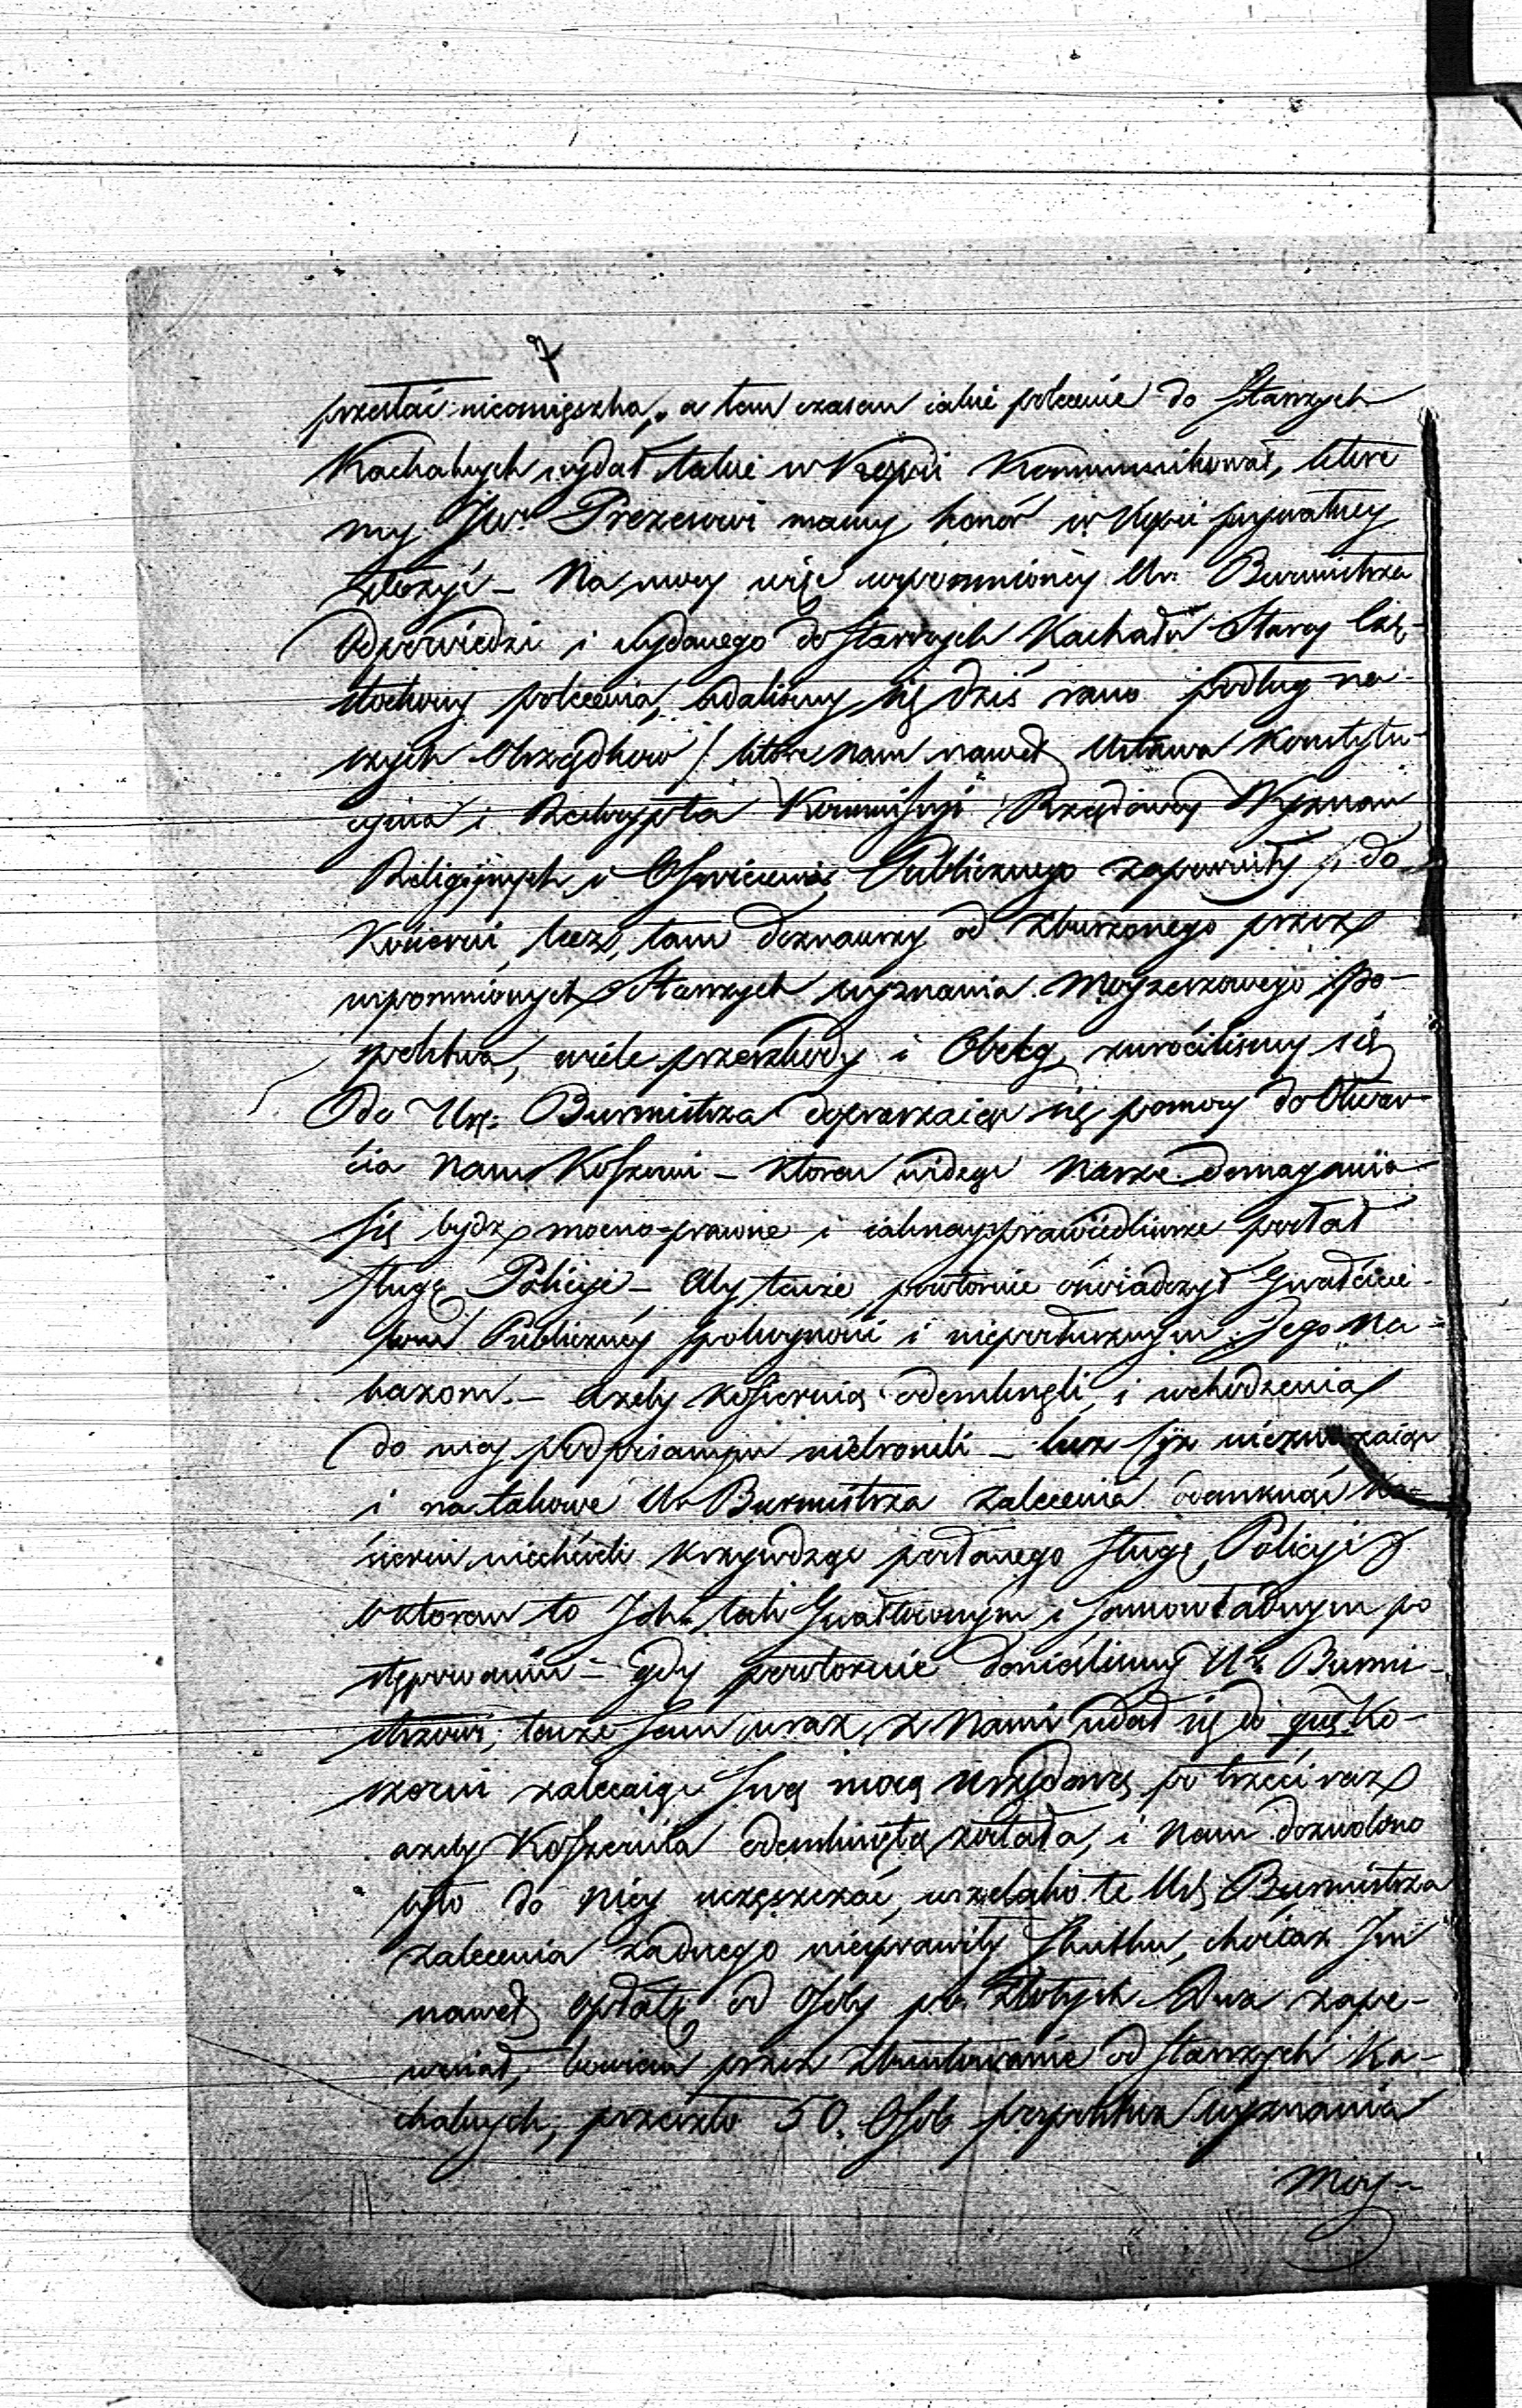 7
przesłać nieomięszka, a tem czasem iakie polecenie do Starszych
Kachalnych wydał takie w Kopii Kommunikował, które
my JWu Prezesowi mamy honor w Kopii prywatney
złożyć – Na mocy więc wspomnioney Ur: Burmistrza
Odpowiedzi i wydanego do starszych Kachału Starey Czę-
stochowy polecenia, udaliśmy się dziś rano podług na-
szych Obrządkow / które nam nawet Ustawa Konstytu-
cyina i Reskrypta Kommissyi Rządowey Wyznań
Religijnych i Oświecenia Publicznego zapewniły / do
Kośerni, lecz tam doznawszy od zburzonego przez
wspomnionych Starszych wyznania Moyżeszowego po-
spolstwa, wiele przeszkody i Obelg, zwróciliśmy się
do Ur: Burmistrza dopraszaiąc się pomocy do Otwar-
cia Nam Koszerni – ktoren widząc Nasze domagania
się bydz mocno prawne i iaknaysprawiedliwsze posłał
sługę Policyi – Aby tenże powtornie oświadczył Gwałcicie-
lom Publiczney spokoyności i nieposłusznym Jego Na-
kazom. – ażeby Kosiernią odemknęli, i wchodzenia
do niey podpisanym niebronili – lecz Ciż niezważaiąc
i na takowe Ur Burmistrza zalecenia odemknąć Ko-
śierni niechcieli krzywdząc posłanego sługę Policyi
o ktorem to Ich tak Gwałtownym i samowładnym po
stępowaniu – gdy powtornie donieśliśmy Ur: Burmi-
strzowi, tenże sam wraz z Nami udał się do rzeź: Ko-
szerni zalecaiąc Swą mocą Urzędową po trzeci raz
ażeby Koszernia odemkniętą została, i Nam dozwolono
było do Niey uczęszczać, wszelako te Ur: Burmistrza
zalecenia żadnego niesprawiły Skutku, chociaż Im
nawet opłatę od Osoby po Złotych Dwa zape-
wniał, bowiem przez zbuntowanie od starszych Ka-
chalnych, przeszło 50. Osob pospolstwa wyznania
Moy-